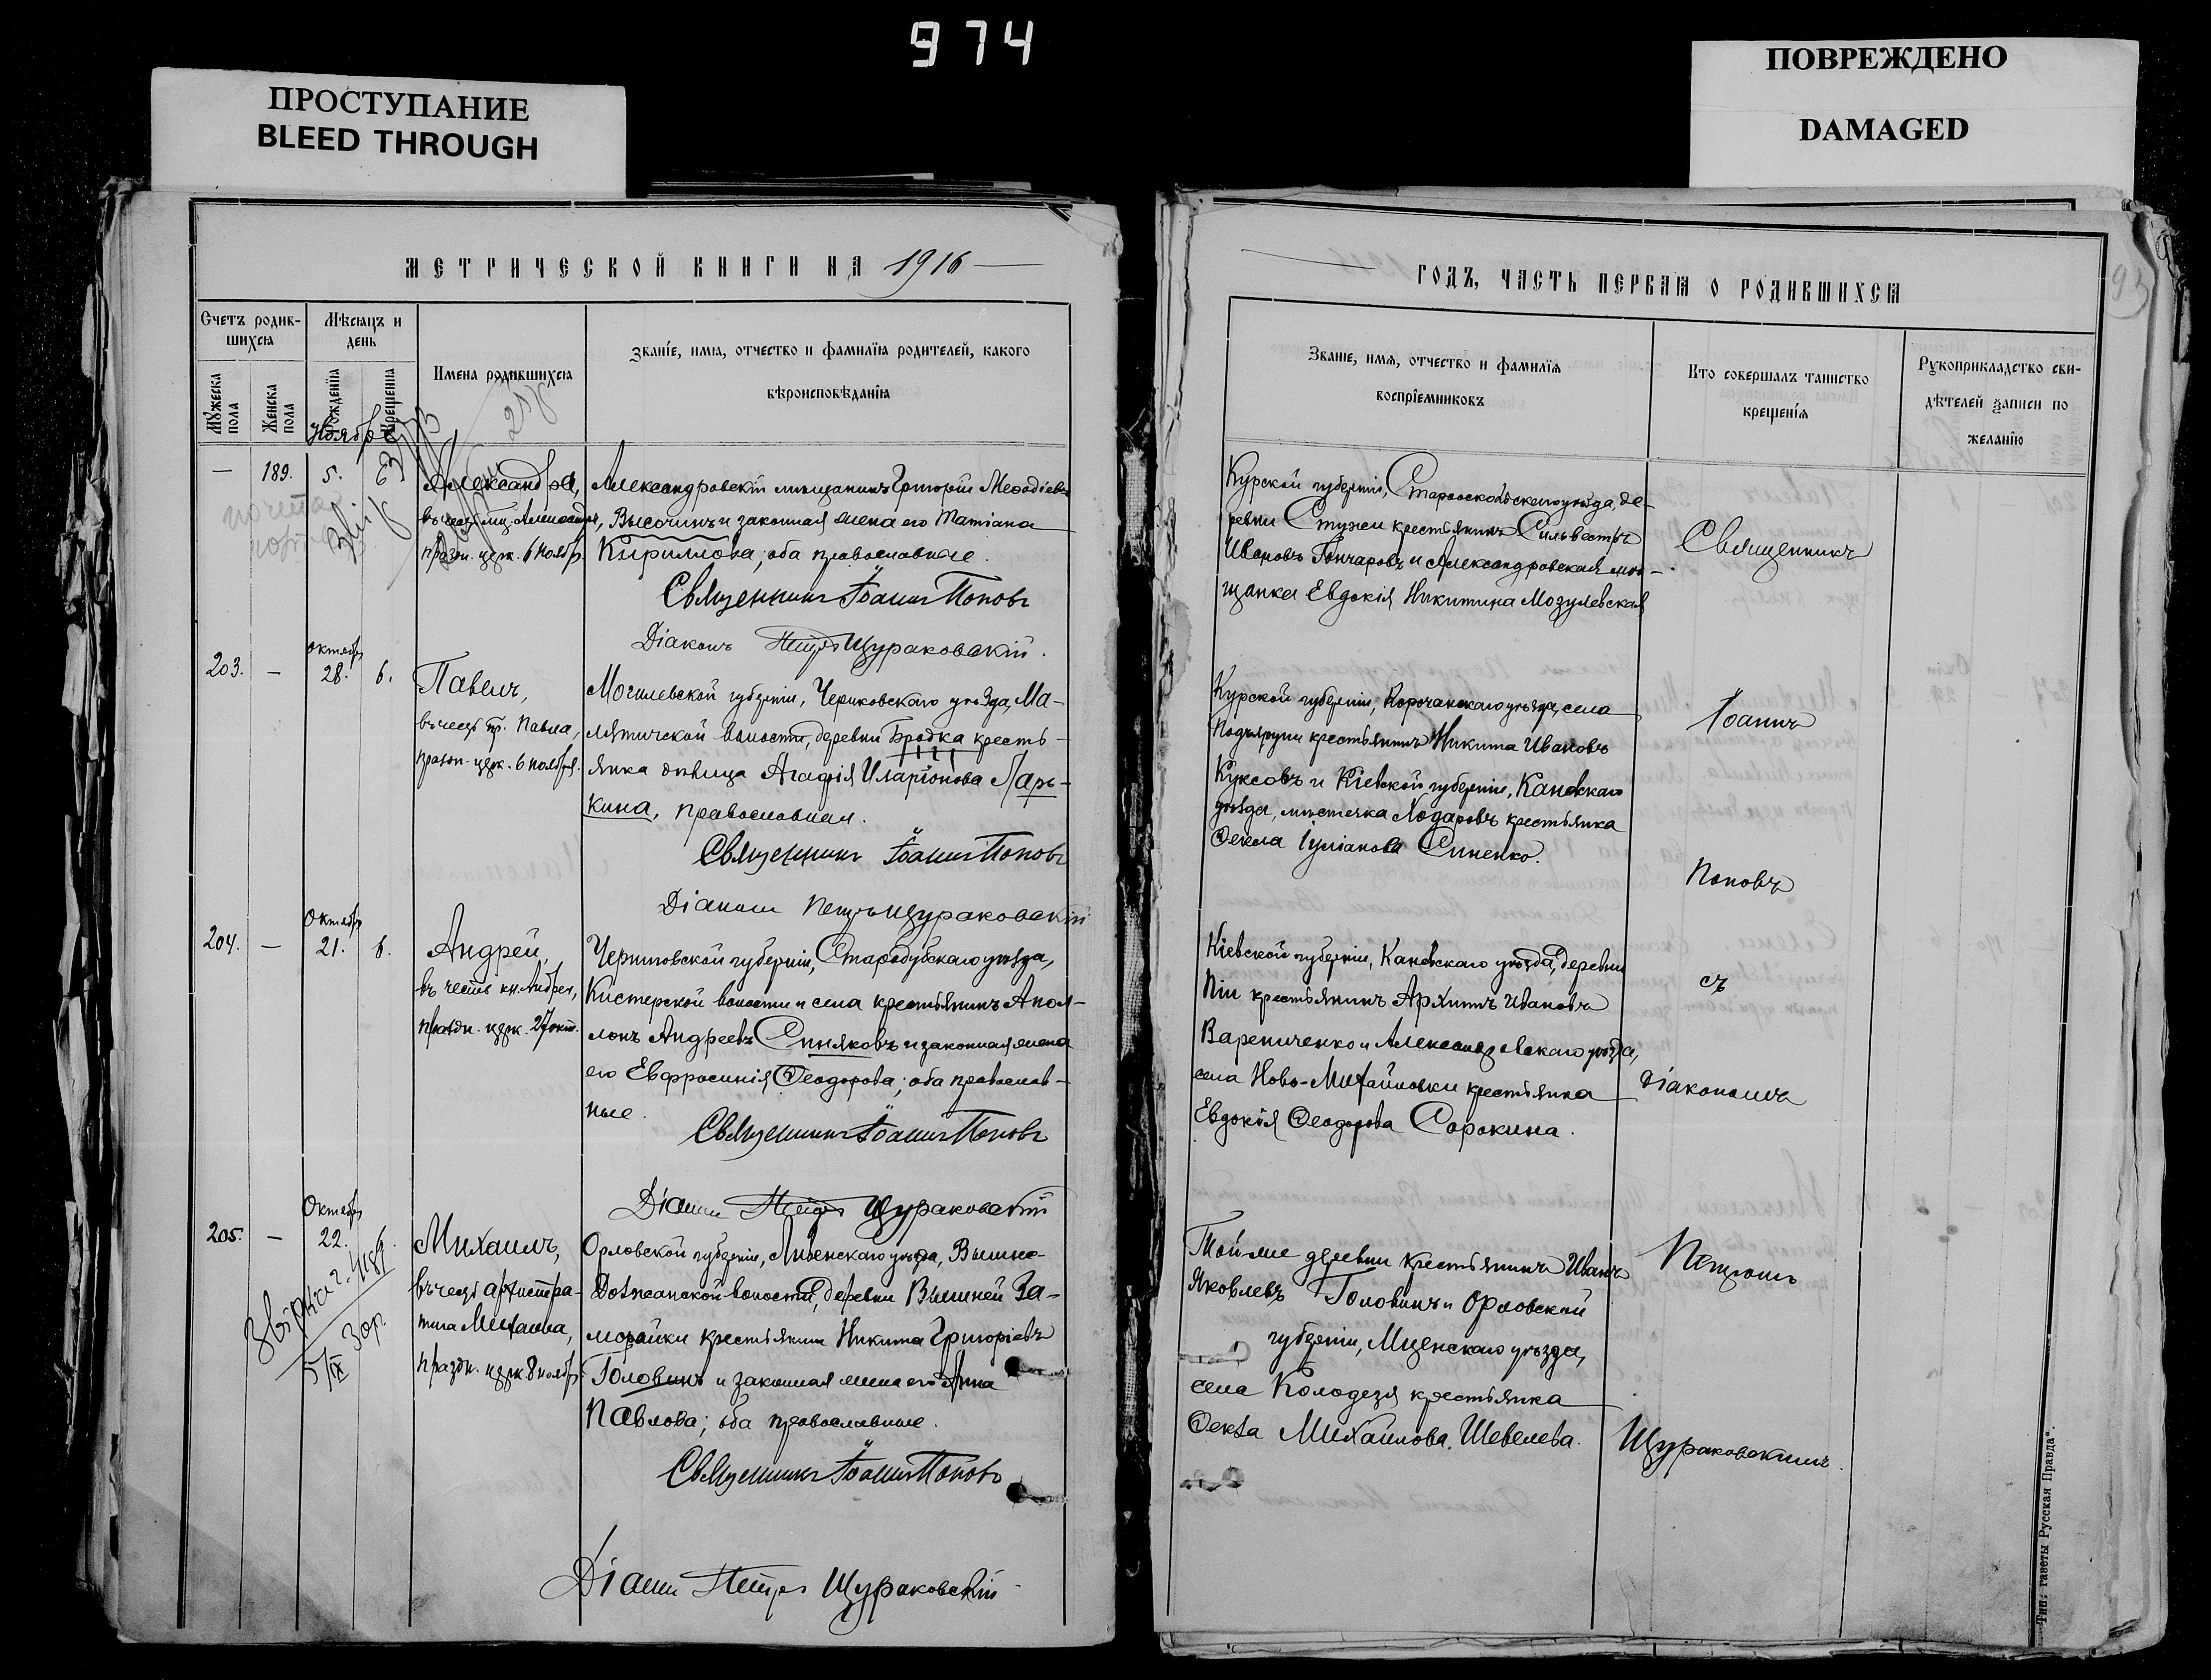 974
ПРОСТУПАНИЕ
BLEED THROUGH
ПОВРЕЖДЕНО
DAMAGED
МЕТРИЧЕСКОЙ КНИГИ НА 1916
Счетъ родив-
шихся
Мѣсяцъ и
день
Имена родившихся
Званіе, имя, отчество и фамилія родителей, какого
вѣроисповѣданія
Мужеска
пола
Женска
пола
Рожденія
Крещенія
Ноябрь
— 189. 5. 6
Александра,
въ честь муц. Александры,
праздн. церк. 6 ноябр.
Александровскій мѣщанинъ Григорій Меѳодіевъ
Высочинъ и законная жена его Татіана
Кириллова; оба православные.
Священникъ Іоаннъ Поповъ
Діаконъ Петръ Щураковскій.
октябрь
203. — 28. 6.
Павелъ,
въ честь пр. Павла,
праздн. церк. 6 ноября.
Могилевской губерніи, Чериковскаго уѣзда, Ма-
лятичской волости, деревни Бродка кресть-
янка дѣвица Агафія Иларіонова Ларь-
кина, православная.
Священникъ Іоаннъ Поповъ
Діаконъ Петръ Щураковскій
Октябрь
204. — 21. 6.
Андрей,
въ честь кн. Андрея,
праздн. церк. 27 окт.
Черниговской губерніи, Стародубскаго уѣзда,
Кистерской волости и села крестьянинъ Апол-
лонъ Андреевъ Синяковъ и законная жена
его Евфросинія Ѳеодорова; оба православ-
ные.
Священникъ Іоаннъ Поповъ
Діаконъ Петръ Щураковскій
Октябрь
205. — 22. 6.
Михаилъ,
въ честь архистра-
тига Михаила,
праздн. церк. 8 ноябр.
Орловской губерніи, Ливенскаго уѣзда, Вышне-
Должанской волости, деревни Вышней За-
морайки крестьянинъ Никита Григорьевъ
Головинъ и законная жена его Анна
Павлова; оба православные.
Священникъ Іоаннъ Поповъ
Діаконъ Петръ Щураковскій
ГОДЪ, ЧАСТЬ ПЕРВАЯ О РОДИВШИХСЯ
Званіе, имя, отчество и фамилія
воспріемниковъ
Кто совершалъ таинство
крещенія
Рукоприкладство сви-
дѣтелей записи по
желанію
Курской губерніи, Старооскольскаго уѣзда, де-
ревни крестьянинъ Сильвестръ
Ивановъ Гончаровъ и Александровская мѣ-
щанка Евдокія Никитина Мозулевская
Курской губерніи, Корочанскаго уѣзда, села
Подъяруги крестьянинъ Никита Ивановъ
Куксовъ и Кіевской губерніи, Каневскаго
уѣзда, мѣстечка Ходаровъ крестьянка
Ѳекла Іуліанова Синенко.
Кіевской губерніи, Каневскаго уѣзда, деревни
Піи крестьянинъ Архипъ Ивановъ
Варениченко и Александровскаго уѣзда,
села Ново-Михайловки крестьянка
Евдокія Ѳеодорова Сорокина.
Той-же деревни крестьянинъ Иванъ
Яковлевъ Головинъ и Орловской
губерніи, Мценскаго уѣзда,
села Колодезя крестьянка
Ѳекла Михаилова Шевелева.
Священникъ
Іоаннъ
Поповъ
съ
діакономъ
Петромъ
Щураковскимъ.
Тип. газеты „Русская Правда“.